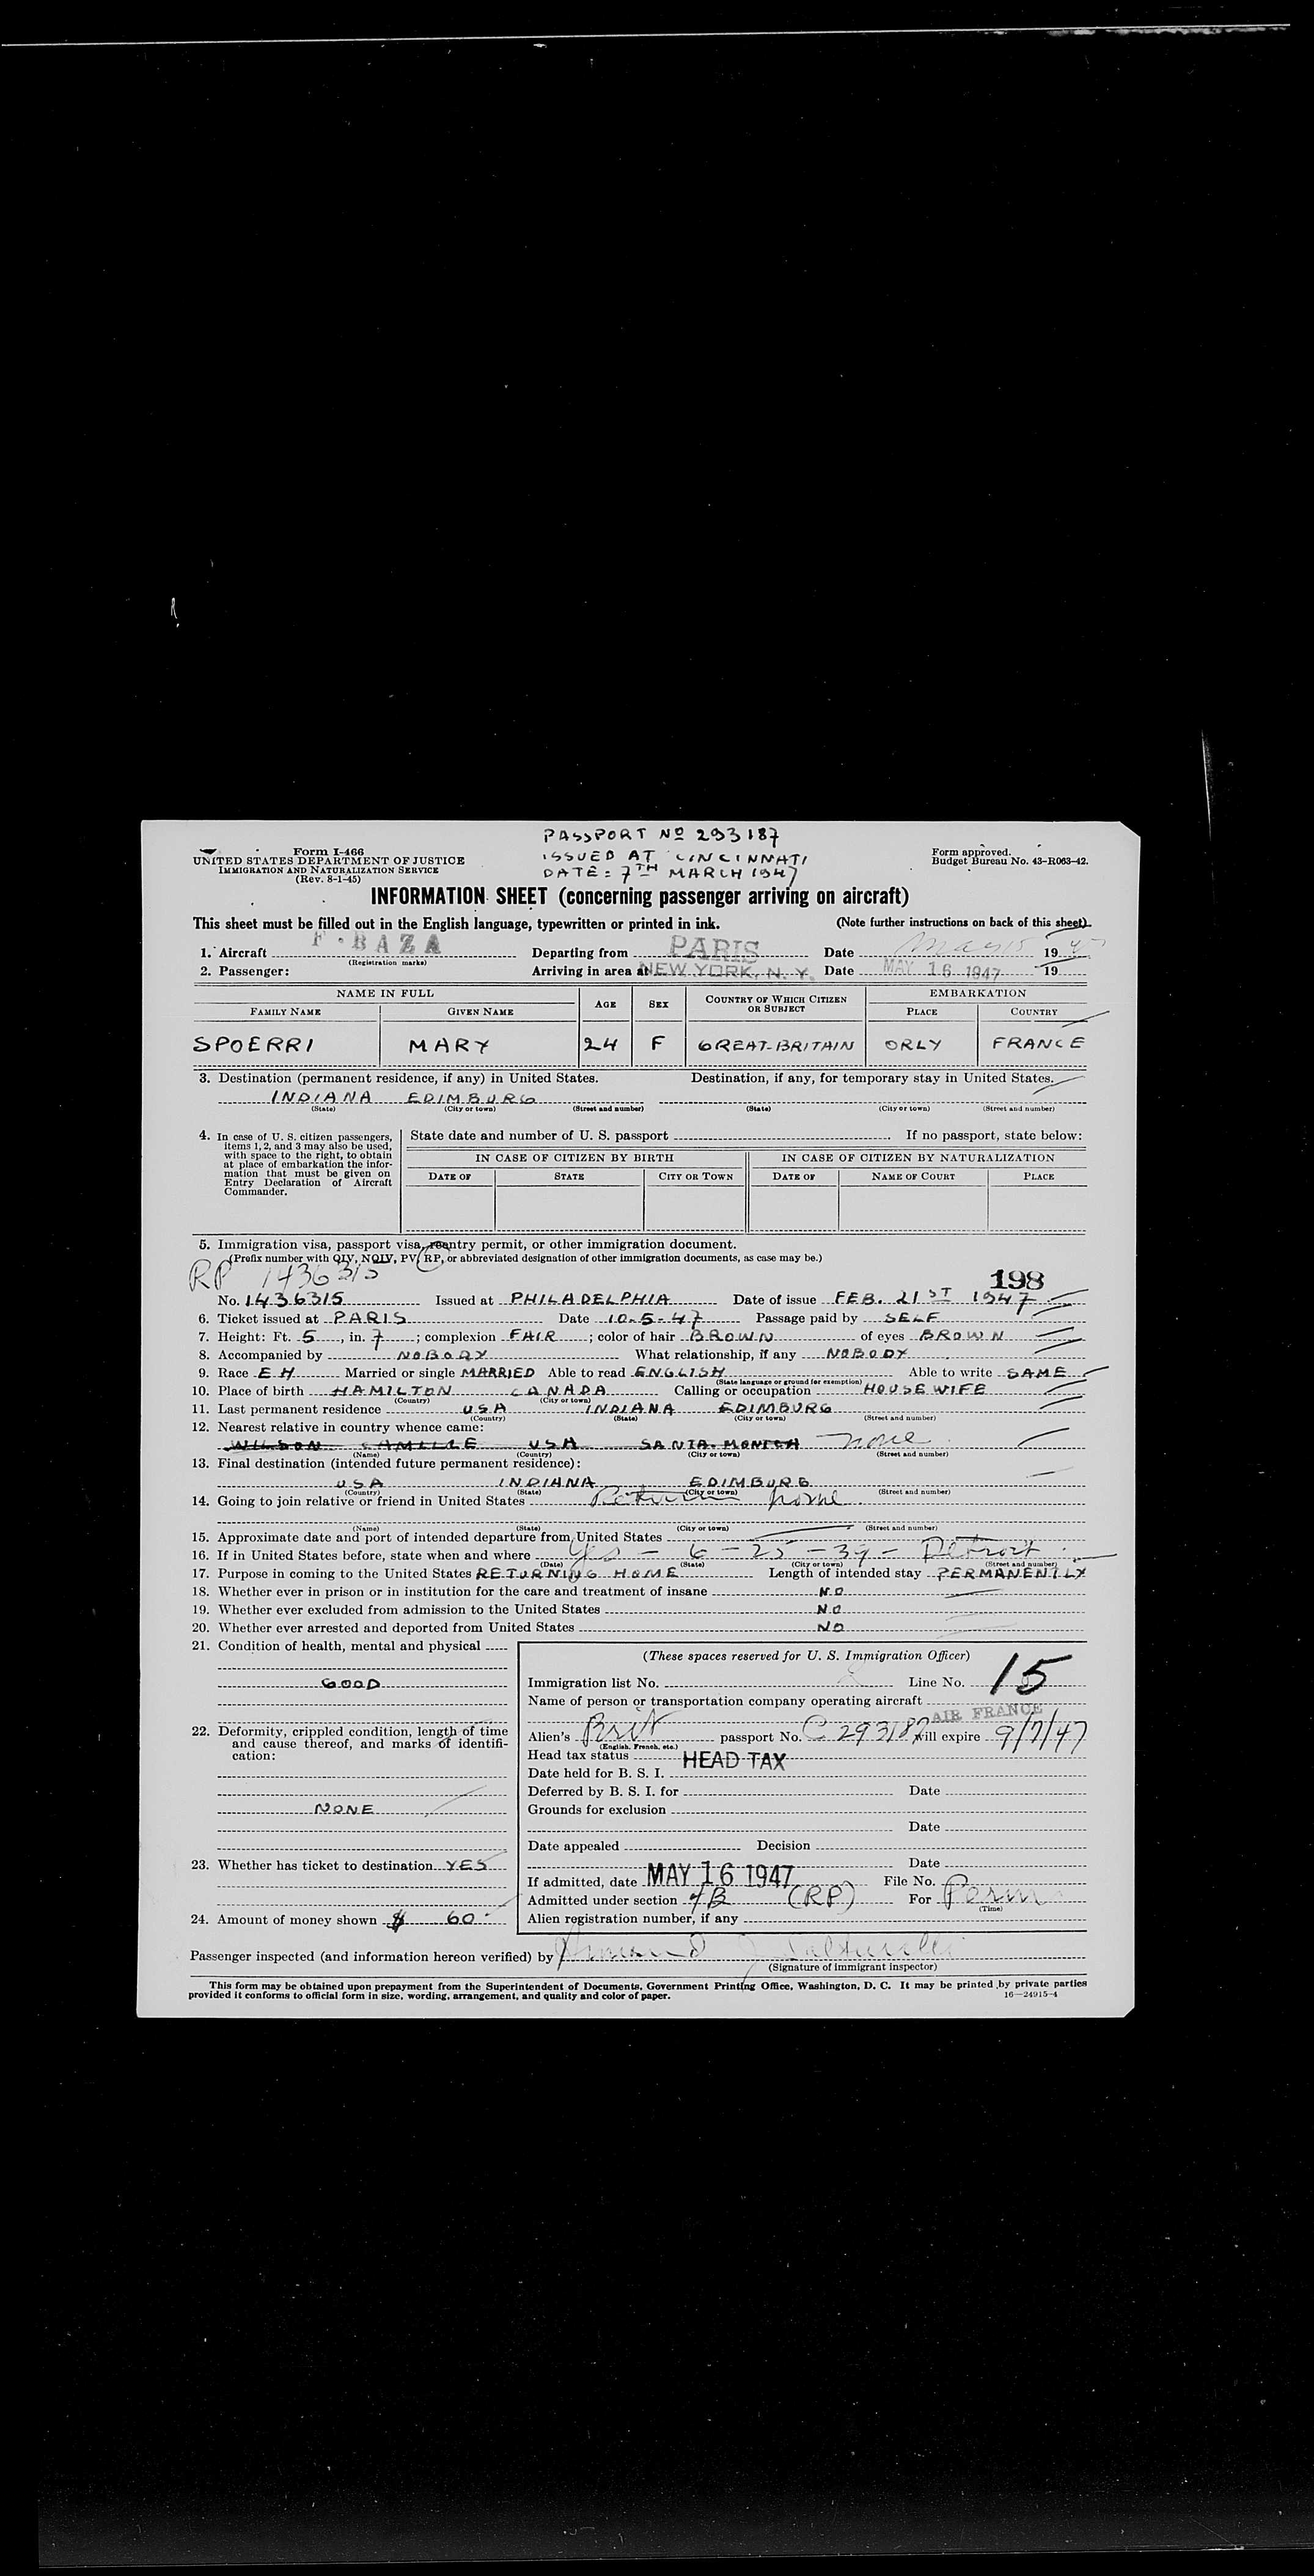 PASSPORT Nº 293187
ISSUED AT CINCINNATI
DATE: 7TH MARCH 1947
Form I-466
UNITED STATES DEPARTMENT OF JUSTICE
IMMIGRATION AND NATURALIZATION SERVICE
(Rev. 8-1-45)
Form approved.
Budget Bureau No. 43-R063-42.
INFORMATION SHEET (concerning passenger arriving on aircraft)
This sheet must be filled out in the English language, typewritten or printed in ink. (Note further instructions on back of this sheet).
1. Aircraft F·BAZA Departing from PARIS Date May 15 1947
(Registration marks)
2. Passenger: Arriving in area at NEW YORK, N. Y. Date MAY 16 1947 19
NAME IN FULL AGE SEX COUNTRY OF WHICH CITIZEN OR SUBJECT EMBARKATION
FAMILY NAME GIVEN NAME PLACE COUNTRY
SPOERRI MARY 24 F GREAT-BRITAIN ORLY FRANCE
3. Destination (permanent residence, if any) in United States. Destination, if any, for temporary stay in United States.
INDIANA EDIMBURG
(State) (City or town) (Street and number) (State) (City or town) (Street and number)
4. In case of U. S. citizen passengers, items 1, 2, and 3 may also be used, with space to the right, to obtain at place of embarkation the information that must be given on Entry Declaration of Aircraft Commander.
State date and number of U. S. passport If no passport, state below:
IN CASE OF CITIZEN BY BIRTH IN CASE OF CITIZEN BY NATURALIZATION
DATE OF STATE CITY OR TOWN DATE OF NAME OF COURT PLACE
5. Immigration visa, passport visa, reentry permit, or other immigration document.
(Prefix number with QIV, NQIV, PV, RP, or abbreviated designation of other immigration documents, as case may be.)
RP 1436315
198
No. 1436315 Issued at PHILADELPHIA Date of issue FEB. 21ST 1947
6. Ticket issued at PARIS Date 10-5-47 Passage paid by SELF
7. Height: Ft. 5, in. 7; complexion FAIR; color of hair BROWN of eyes BROWN
8. Accompanied by NOBODY What relationship, if any NOBODY
9. Race EH Married or single MARRIED Able to read ENGLISH Able to write SAME
(State language or ground for exemption)
10. Place of birth HAMILTON CANADA Calling or occupation HOUSEWIFE
(Country) (City or town)
11. Last permanent residence USA INDIANA EDIMBURG
(Country) (State) (City or town) (Street and number)
12. Nearest relative in country whence came:
WILSON CAMILLE USA SANTA-MONICA none
(Name) (Country) (City or town) (Street and number)
13. Final destination (intended future permanent residence):
USA INDIANA EDIMBURG
(Country) (State) (City or town) (Street and number)
14. Going to join relative or friend in United States Return home
(Name) (State) (City or town) (Street and number)
15. Approximate date and port of intended departure from United States
16. If in United States before, state when and where Yes - 6-25-39 - Detroit
(Date) (State) (City or town) (Street and number)
17. Purpose in coming to the United States RETURNING HOME Length of intended stay PERMANENTLY
18. Whether ever in prison or in institution for the care and treatment of insane NO
19. Whether ever excluded from admission to the United States NO
20. Whether ever arrested and deported from United States NO
21. Condition of health, mental and physical
GOOD
22. Deformity, crippled condition, length of time and cause thereof, and marks of identification:
NONE
23. Whether has ticket to destination YES
24. Amount of money shown $ 60
(These spaces reserved for U. S. Immigration Officer)
Immigration list No. Line No. 15
Name of person or transportation company operating aircraft
AIR FRANCE
Alien's Brit passport No. C 293187 will expire 9/7/47
(English, French, etc.)
Head tax status HEAD TAX
Date held for B. S. I.
Deferred by B. S. I. for Date
Grounds for exclusion
Date
Date appealed Decision
Date
If admitted, date MAY 16 1947 File No.
Admitted under section 4B (RP) For Perm
(Time)
Alien registration number, if any
Passenger inspected (and information hereon verified) by
(Signature of immigrant inspector)
This form may be obtained upon prepayment from the Superintendent of Documents, Government Printing Office, Washington, D. C. It may be printed by private parties
provided it conforms to official form in size, wording, arrangement, and quality and color of paper. 16—24915-4